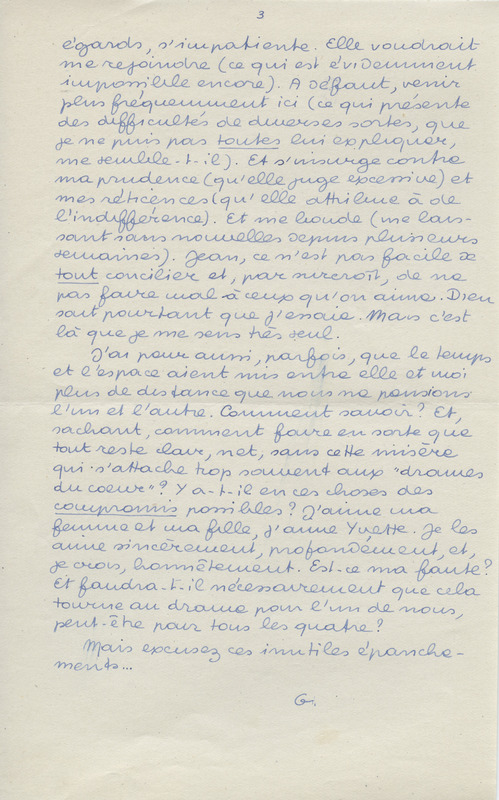 3
égards, s'impatiente. Elle voudrait
me rejoindre (ce qui est évidemment
impossible encore). A défaut, venir
plus fréquemment ici (ce qui présente
des difficultés de diverses sortes, que
je ne puis pas toutes lui expliquer,
me semble-t-il). Et s'insurge contre
ma prudence (qu'elle juge excessive) et
mes réticences (qu'elle attribue à de
l'indifférence). Et me boude (me lais-
sant sans nouvelles depuis plusieurs
semaines). Jean, ce n'est pas facile de
tout concilier et, par surcroît, de ne
pas faire mal à ceux qu'on aime. Dieu
sait pourtant que j'essaie. Mais c'est
là que je me sens très seul.
J'ai peur aussi, parfois, que le temps
et l'espace aient mis entre elle et moi
plus de distance que nous ne pensions
l'un et l'autre. Comment savoir? Et,
sachant, comment faire en sorte que
tout reste clair, net, sans cette misère
qui s'attache trop souvent aux "drames
du coeur"? Y a-t-il en ces choses des
compromis possibles? J'aime ma
femme et ma fille, j'aime Yvette. Je les
aime sincèrement, profondément, et,
je crois, honnêtement. Est-ce ma faute?
Et faudra-t-il nécessairement que cela
tourne au drame pour l'un de nous,
peut-être pour tous les quatre?
Mais excusez ces inutiles épanche-
ments...
G.